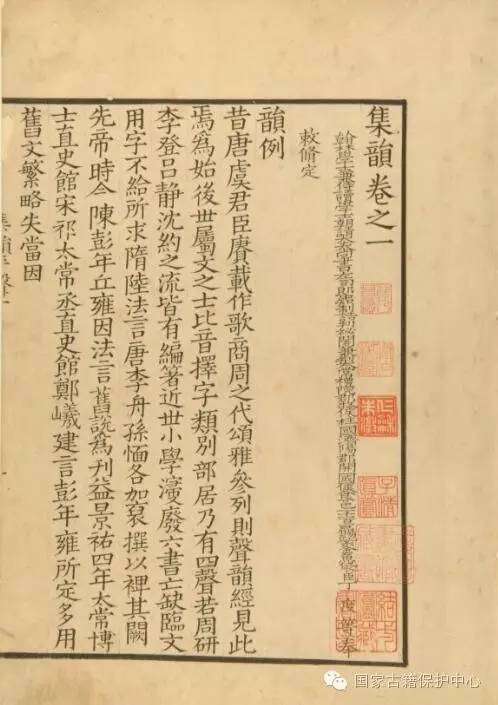 集韻卷之一
翰林學士兼侍讀學士朝請大夫尚書左司郎中知制誥判秘閣兼判太常禮院羣牧使柱國濟陽郡開國侯食邑一千
賜紫金魚袋臣丁度等奉
敕脩定
韻例
昔唐虞君臣賡載作歌商周之代頌雅參列則聲韻經見此
焉為始後世屬文之士比音擇字類別部居乃有四聲若周研
李登呂靜沈約之流皆有編著近世小學濅廢六書亡缺臨文
用字不給所求隋陸法言唐李舟孫愐各加裒撰以裨其闕
先帝時令陳彭年丘雍因法言舊說為刋益景祐四年太常博
士直史館宋祁太常丞直史館鄭戩建言彭年雍所定多用
舊文繁略失當因
国家古籍保护中心